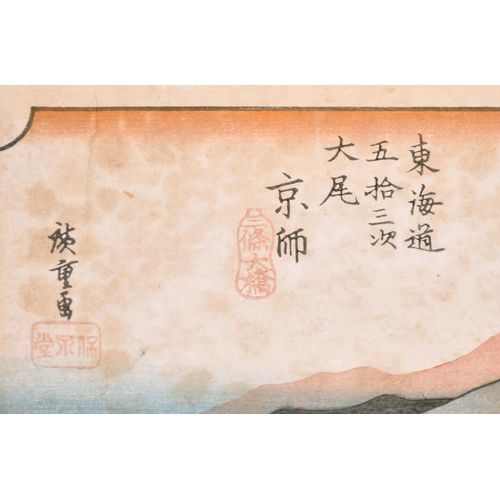 東海道
五拾三次
大尾
京師
三條大橋
廣重画
保永堂